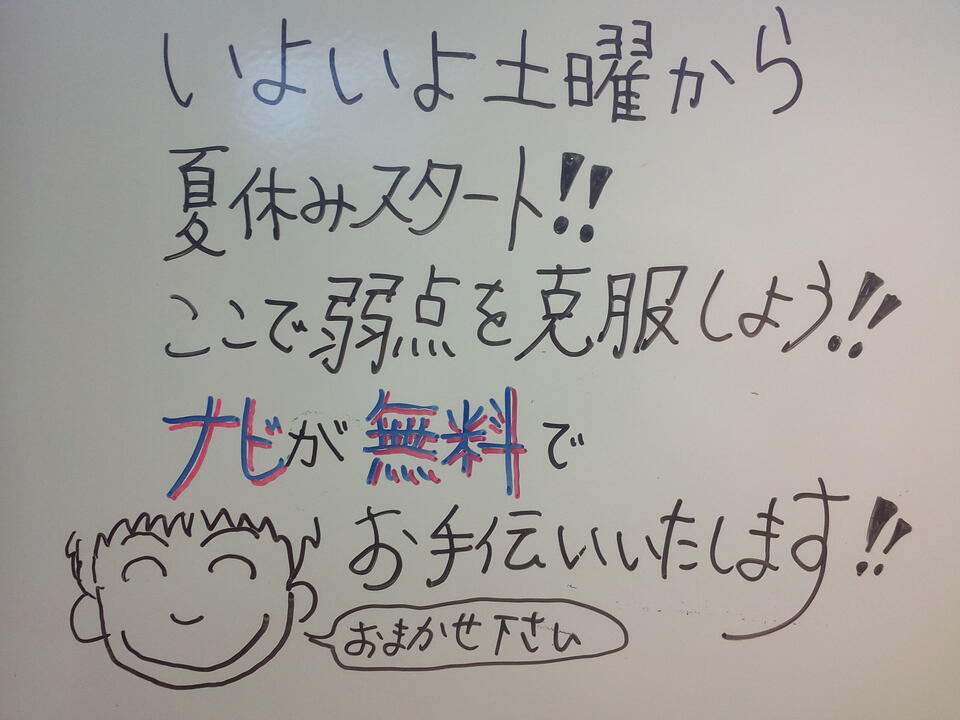 いよいよ土曜から
夏休みスタート!!
ここで弱点を克服しよう!!
ナビが無料で
お手伝いいたします!!
おまかせ下さい